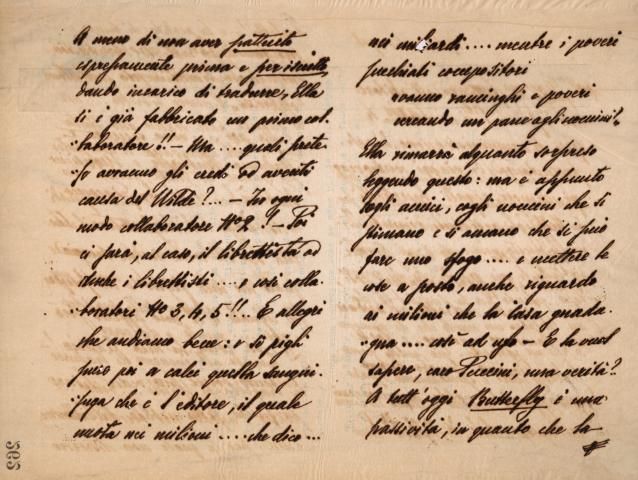 A meno di non aver pattuito
espressamente prima e per iscritto,
dando incarico di tradurre, Ella
si è già fabbricato un primo col-
laboratore!! — Ma .... quali prete-
se avranno gli eredi od aventi
causa del Wilde?... — In ogni
modo collaboratore No 2! — Poi
ci sarà, al caso, il librettista od
anche i librettisti .... e così colla-
boratori No 3, 4, 5!!.. E allegri
che andiamo bene: e si pigli
pure poi a calci quella sangui-
suga che è l'editore, il quale
nuota nei milioni .... che dico ...
nei miliardi .... mentre i poveri
succhiati compositori
vanno raminghi e poveri
cercando un pane agli uomini!..
Ella rimarrà alquanto sorpreso
leggendo questo: ma è appunto
cogli amici, cogli uomini che si
stimano e si amano che si può
fare uno sfogo .... e mettere le
cose a posto, anche riguardo
ai milioni che la Casa guada-
gna .... così ad ufo — E la vuol
sapere, caro Puccini, una verità?
A tutt'oggi Butterfly è una
passività, in quanto che la
262